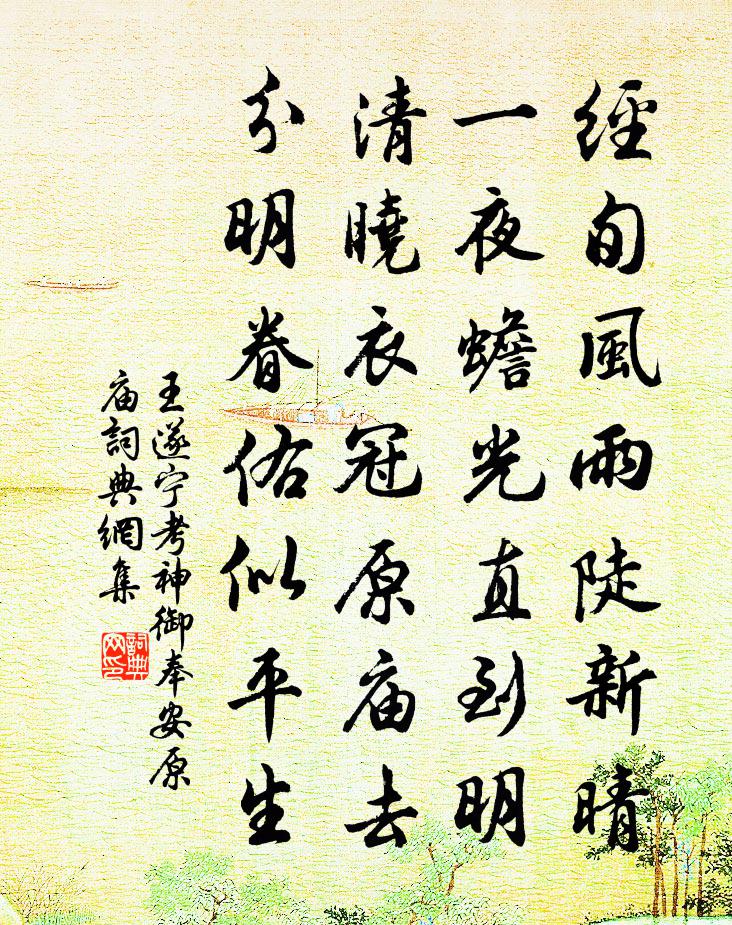 經旬風雨陡新晴
一夜蟾光直到明
清曉衣冠原庙去
分明眷佑似平生
王遂宁考神御奉安原
庙詞典網集
詞典
网印